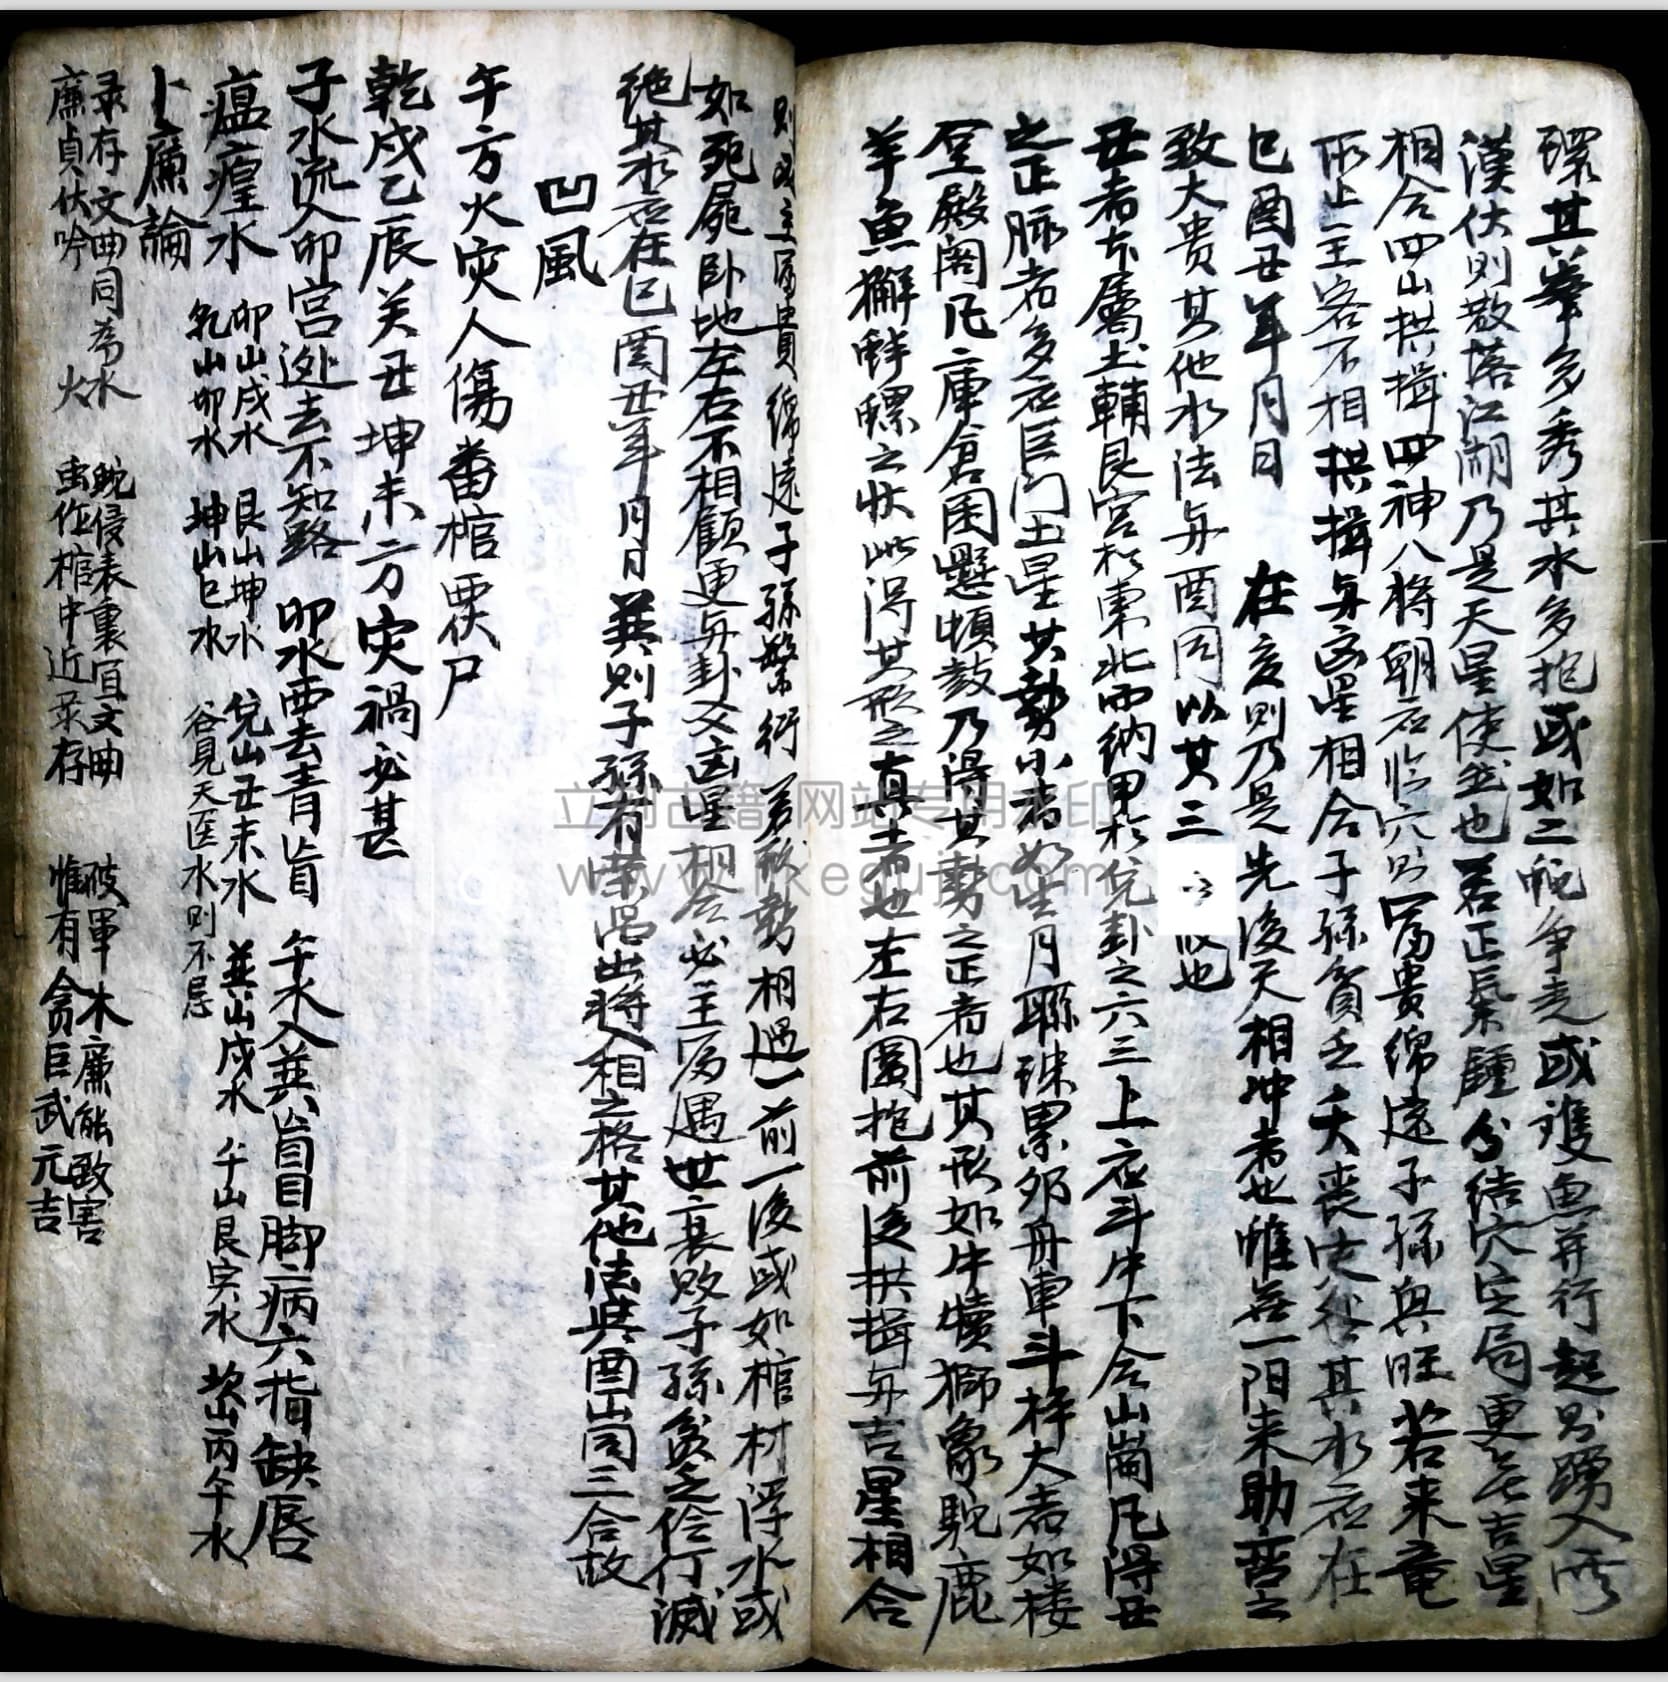 環其峯多秀其水多抱或如二蛇争走或雙魚并行起则踴入
漢伏则散落江湖乃是天星使然也若正气鍾分结穴定局更吉星
相合四山拱揖四神八将朝应临穴则富贵绵遠子孫興旺若来竜
所止主客不相拱揖与凶星相合子孫貧乏夭丧其水应在
巳酉丑年月日 在亥则乃是先後天相冲者也惟一阳来助
致大贵其他水法与酉同以其三也
丑者本屬土輔艮宫於東北而纳甲於兌卦之六三上应斗牛下合山崗凡得丑
之正脉者多应巨门土星其勢小者如生月聯珠累卵舟車斗梓大者如楼
台殿阁凡庫倉囷懸頓鼓乃得其勢之正者也其形如牛犢獅象駝鹿
羊魚獬蚌螺之状此得其形之真者也左右圍抱前後拱揖与吉星相合
则主富貴绵遠子孫繁衍若形勢相遇一前一後或如棺材浮水或
如死屍卧地左右不相顧更与卦爻凶星相合必主为遇世衰败子孫贫乏伶仃滅
绝其水应在巳酉丑年月日巽则子孫有出将入相之格其他法与酉山同三合故
凹風
午方火灾人傷番棺覆伏尸
乾戌乙辰关丑坤未方灾禍必甚
子水流入卯宫逊去不知路 卯水西去青盲 午水入巽盲目脚病六指缺唇
瘟癀水 卯山戌水 艮山坤水 兌山丑未水 巽山戌水 午山艮寅水 坎山丙午水
乾山卯水 坤山巳水 谷見天医水则不忌
卜廉論
录存文曲同為水 蛇侵表裏宜文曲 破軍木廉能致害
廉貞伏吟火 虫作棺中近录存 惟有貪巨武元吉
立刻古籍 网站专用水印